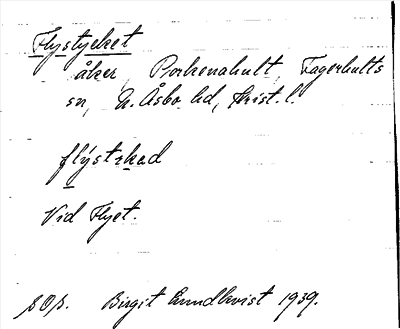 Flystycket
åker, Porkenahult, Fagerhults
sn, N. Åsbo hd, Krist. l.
Vid Flyet.
Birgit Lundkvist 1939.